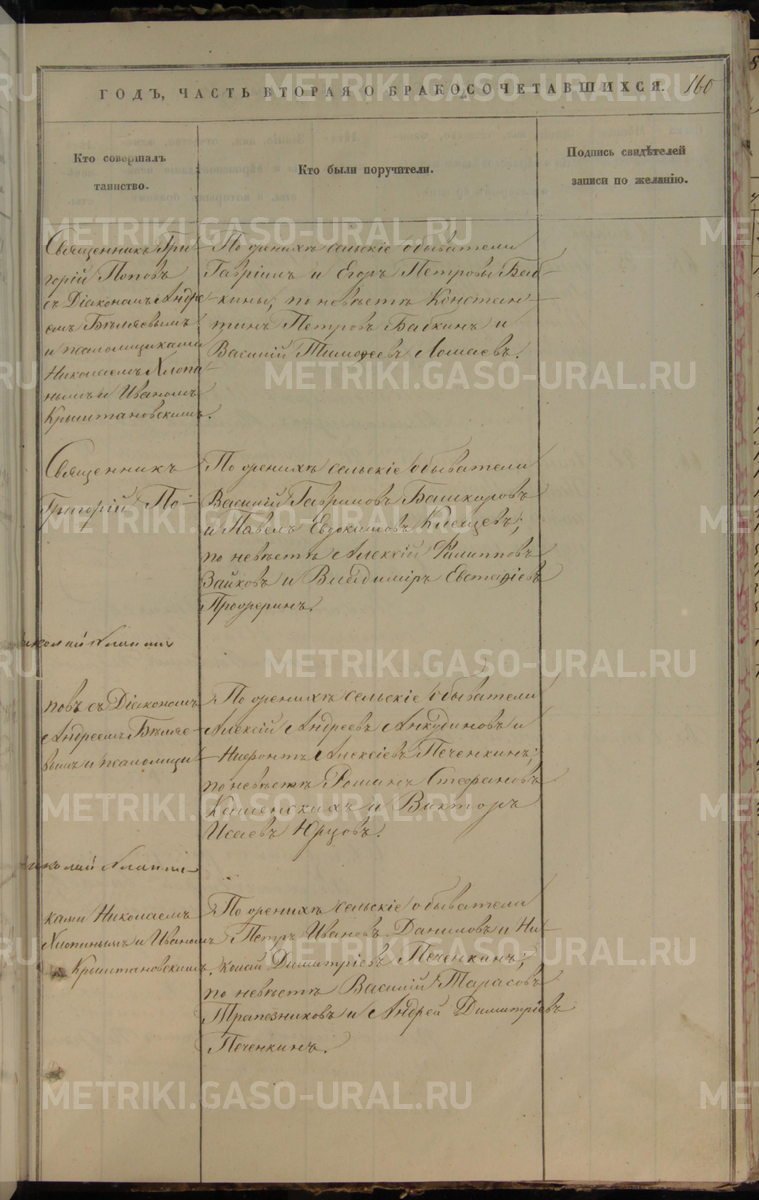 ГОДЪ, ЧАСТЬ ВТОРАЯ О БРАКОСОЧЕТАВШИХСЯ. 160
Кто совершалъ
таинство.
Кто были поручители.
Подпись свидѣтелей
записи по желанію.
Священникъ Гри-
горій Поповъ
съ Діакономъ Андре-
емъ Бѣляевымъ
и псаломщиками
Николаемъ Хлопи-
нымъ и Иваномъ
Крыштановскимъ.
По женихѣ сельскіе обыватели
Гавріилъ и Егоръ Петровы Баб-
кины; по невѣстѣ Констан-
тинъ Петровъ Бабкинъ и
Василій Тимофеевъ Ломаевъ.
Священникъ
Григорій По-
По женихѣ сельскіе обыватели
Василій Гавриловъ Башкировъ
и Павелъ Евдокимовъ Клещевъ;
по невѣстѣ Алексій Филипповъ
Зайковъ и Владиміръ Евстафіевъ
Проферинъ.
повъ съ Діакономъ
Андреемъ Бѣляе-
вымъ и псаломщи-
По женихѣ сельскіе обыватели
Алексій Андреевъ Анкудиновъ и
Нифонтъ Алексіевъ Печенкинъ;
по невѣстѣ Романъ Стефановъ
Каменскихъ и Викторъ
Исаевъ Юрцовъ.
ками Николаемъ
Хлопинымъ и Иваномъ
Крыштановскимъ.
По женихѣ сельскіе обыватели
Петръ Ивановъ Даниловъ и Ни-
колай Димитріевъ Печенкинъ;
по невѣстѣ Василій Тарасовъ
Трапезниковъ и Андрей Димитріевъ
Печенкинъ.
METRIKI.GASO-URAL.RU